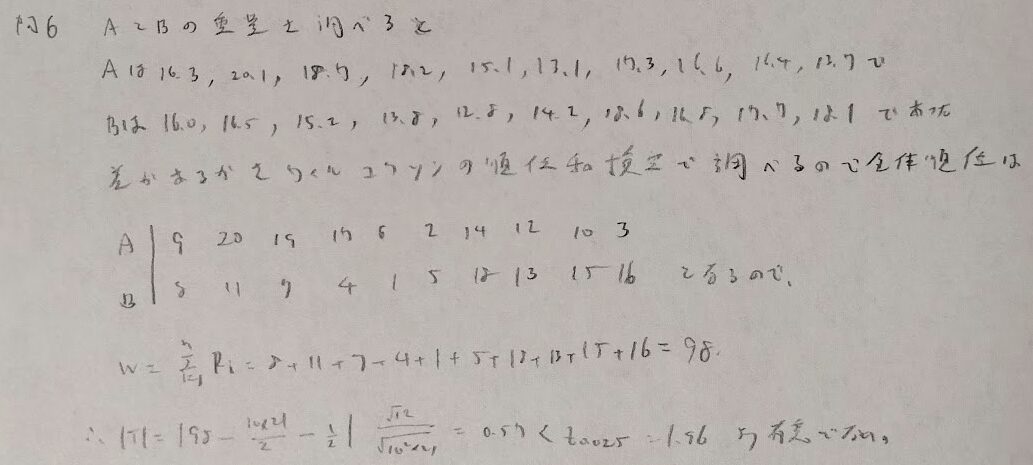 問6 AとBの重量を調べると
Aは 16.3, 20.1, 18.7, 18.2, 15.1, 13.1, 17.3, 16.6, 16.4, 13.7で
Bは 16.0, 16.5, 15.2, 13.8, 12.8, 14.2, 18.6, 16.8, 17.7, 18.1 であった
差があるかをウィルコクソンの順位和検定で調べるので全体順位は
A | 9 20 19 17 6 2 14 12 10 3
B | 8 11 7 4 1 5 18 13 15 16 となるので、
W = Σ_{i=1}^{n} Ri = 8+11+7+4+1+5+18+13+15+16 = 98.
∴ |T| = |98 - 10×21/2 - 1/2| √12/√(10²×21) = 0.57 < t0.025 = 1.96 より有意でない。